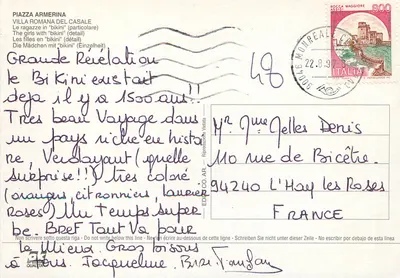 PIAZZA ARMERINA
VILLA ROMANA DEL CASALE
Le ragazze in "bikini" (particolare)
The girls with "bikini" (detail)
Les filles en "bikini" (détail)
Die Mädchen mit "bikini" (Einzelheit)
Grande Révélation
le Bikini existait
déjà il y a 1500 ans!!
Très beau Voyage dans
un pays riche en histoi
re, Verdoyant (quelle
surprise!!) très coloré
(oranges, citronniers, lauriers
Roses) Un Temps super
be. BREF Tout Va pour
le Mieux Gros bisous
à Tous. Jacqueline.
48
800
ITALIA
22.8.9
Mr Mme Melles Denis
110 rue de Bicêtre
94240 L'Hay les Roses
FRANCE
Non scrivere sotto questa riga - Do not write below this line - Ne pas écrire au-dessous de cette ligne - Schreiben Sie nicht unter dieser Zeile - No escribir por debajo de esta línea